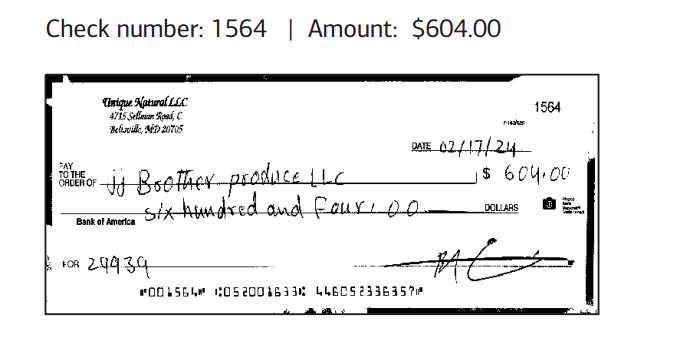 Check number: 1564 | Amount: $604.00
Unique Natural LLC
4715 Sellman Road, C
Beltsville, MD 20705
1564
DATE 02/17/24
PAY TO THE ORDER OF jj Brother produce LLC $ 604.00
six hundred and Four . 00 DOLLARS
Bank of America
FOR 29939